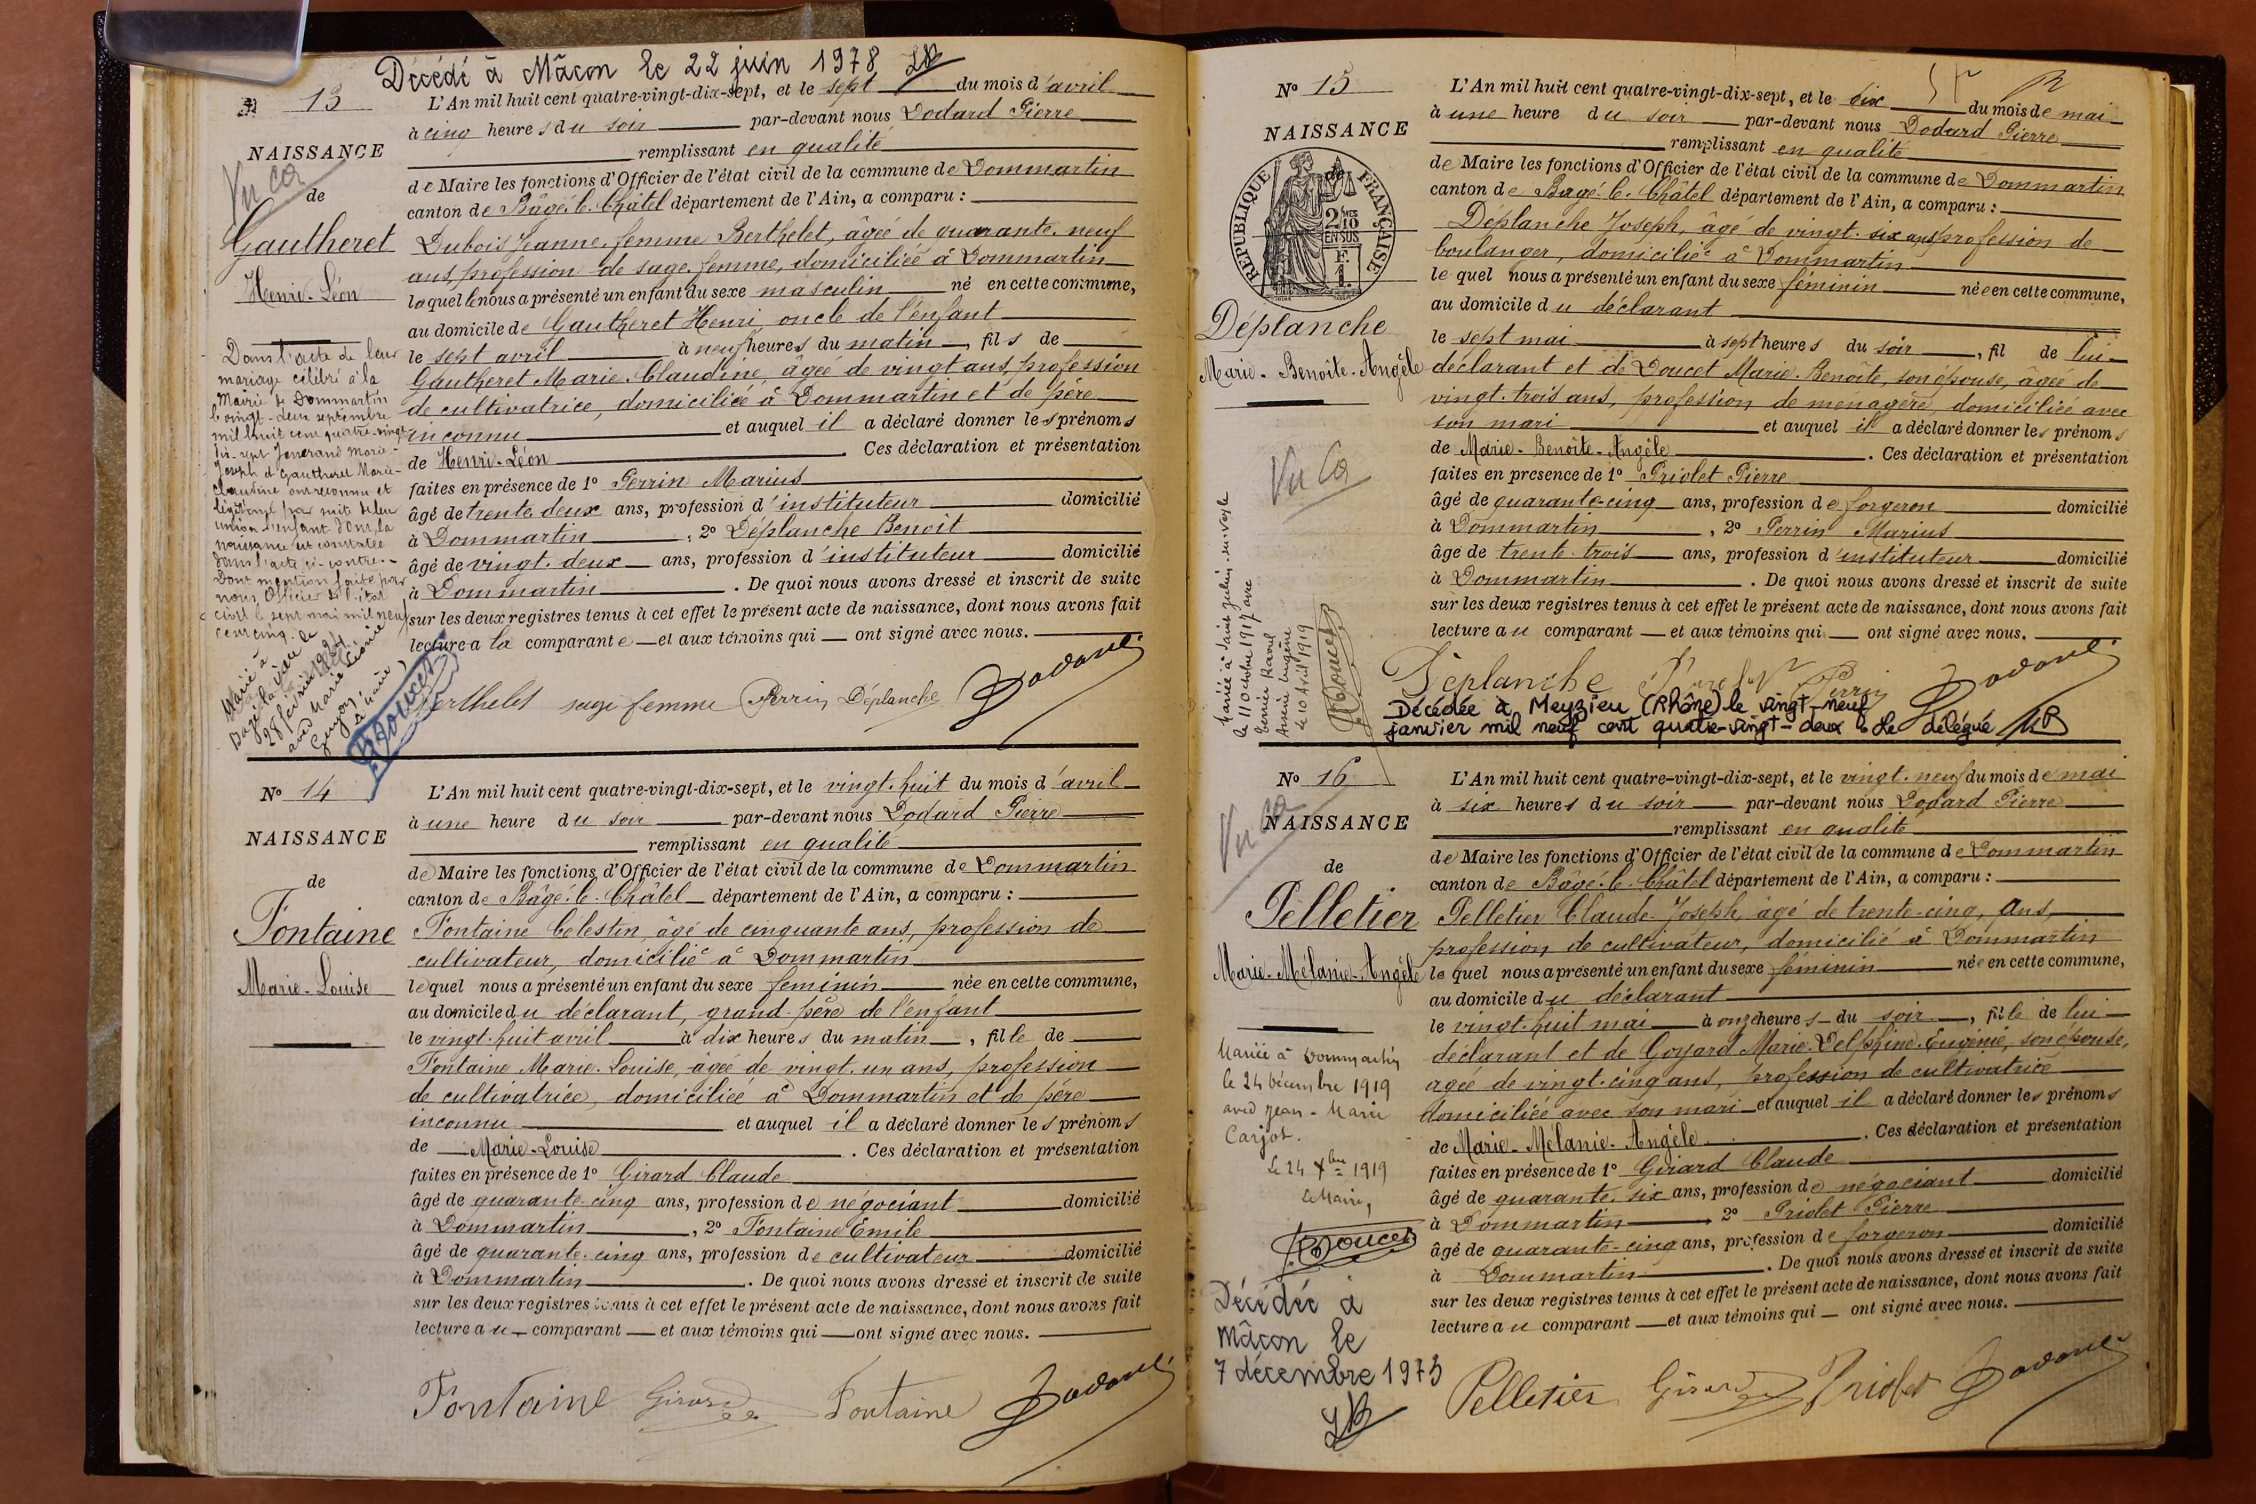 Décédé à Mâcon le 22 juin 1978
N° 13
NAISSANCE
Vu
de
Gautheret
Henri-Léon
L'An mil huit cent quatre-vingt-dix-sept, et le sept du mois d'avril
à cinq heures du soir par-devant nous Dodard Pierre
remplissant en qualité
de Maire les fonctions d'Officier de l'état civil de la commune de Dommartin
canton de Bâgé-le-Châtel département de l'Ain, a comparu :
Dubois Jeanne, femme Berthelet, âgée de quarante-neuf
ans, profession de sage femme, domiciliée à Dommartin
laquelle nous a présenté un enfant du sexe masculin né en cette commune,
au domicile de Gautheret Henri oncle de l'enfant
le sept avril à neuf heures du matin, fils de
Gautheret Marie-Claudine, âgée de vingt ans, profession
de cultivatrice, domiciliée à Dommartin et de père
inconnu et auquel il a déclaré donner les prénoms
de Henri-Léon. Ces déclaration et présentation
faites en présence de 1° Perrin Marius
âgé de trente deux ans, profession d'instituteur domicilié
à Dommartin, 2° Déplanche Benoit
âgé de vingt-deux ans, profession d'instituteur domicilié
à Dommartin. De quoi nous avons dressé et inscrit de suite
sur les deux registres tenus à cet effet le présent acte de naissance, dont nous avons fait
lecture a la comparante et aux témoins qui ont signé avec nous.
Berthelet sage femme Perrin Déplanche Dodard
Dans l'acte de leur
mariage célébré à la
Mairie de Dommartin
le vingt-deux septembre
mil huit cent quatre-vingt
dix-sept Marie-
Joseph et Gautheret Marie-
Claudine ont reconnu et
légitimé par suite de leur
union l'enfant dont la
naissance est constatée
dans l'acte ci-contre.-
Dont mention faite par
nous Officier de l'état
civil le sept mai mil neuf
cent cinq.
Marié à
Bagé la Ville le
28 février 1924
avec Marie
Guyon
Doucet
N° 14
NAISSANCE
de
Fontaine
Marie-Louise
L'An mil huit cent quatre-vingt-dix-sept, et le vingt-huit du mois d'avril
à une heure du soir par-devant nous Dodard Pierre
remplissant en qualité
de Maire les fonctions d'Officier de l'état civil de la commune de Dommartin
canton de Bâgé-le-Châtel département de l'Ain, a comparu :
Fontaine Célestin, âgé de cinquante ans, profession de
cultivateur, domicilié à Dommartin
lequel nous a présenté un enfant du sexe féminin née en cette commune,
au domicile du déclarant, grand-père de l'enfant
le vingt-huit avril à dix heures du matin, fille de
Fontaine Marie-Louise, âgée de vingt-un ans, profession
de cultivatrice, domiciliée à Dommartin et de père
inconnu et auquel il a déclaré donner les prénoms
de Marie-Louise. Ces déclaration et présentation
faites en présence de 1° Girard Claude
âgé de quarante-cinq ans, profession de négociant domicilié
à Dommartin, 2° Fontaine Emile
âgé de quarante-cinq ans, profession de cultivateur domicilié
à Dommartin. De quoi nous avons dressé et inscrit de suite
sur les deux registres tenus à cet effet le présent acte de naissance, dont nous avons fait
lecture au comparant et aux témoins qui ont signé avec nous.
Fontaine Girard Fontaine Dodard
N° 15
NAISSANCE
de
REPUBLIQUE FRANÇAISE
2/10 EN SUS
F. 1.
Déplanche
Marie-Benoîte-Angèle
Vu
L'An mil huit cent quatre-vingt-dix-sept, et le dix du mois de mai
à une heure du soir par-devant nous Dodard Pierre
remplissant en qualité
de Maire les fonctions d'Officier de l'état civil de la commune de Dommartin
canton de Bagé-le-Châtel département de l'Ain, a comparu :
Déplanche Joseph, âgé de vingt-six ans profession de
boulanger, domicilié à Dommartin
lequel nous a présenté un enfant du sexe féminin née en cette commune,
au domicile du déclarant
le sept mai à sept heures du soir, fil de lui
déclarant et de Doucet Marie-Benoîte, son épouse, âgée de
vingt-trois ans, profession de ménagère, domiciliée avec
son mari et auquel il a déclaré donner les prénoms
de Marie-Benoîte-Angèle. Ces déclaration et présentation
faites en présence de 1° Priolet Pierre
âgé de quarante-cinq ans, profession de forgeron domicilié
à Dommartin, 2° Perrin Marius
âgé de trente-trois ans, profession d'instituteur domicilié
à Dommartin. De quoi nous avons dressé et inscrit de suite
sur les deux registres tenus à cet effet le présent acte de naissance, dont nous avons fait
lecture au comparant et aux témoins qui ont signé avec nous.
Déplanche Priolet Perrin Dodard
Décédée à Meyzieu (Rhône) le vingt-neuf
janvier mil neuf cent quatre-vingt-deux Le délégué
Mariée à Saint Julien-sur-Veyle
le 11 octobre 1917 avec
Ravel
Eugène
le 10 Avril 1919
Doucet
N° 16
NAISSANCE
Vu
de
Pelletier
Marie-Mélanie-Angèle
L'An mil huit cent quatre-vingt-dix-sept, et le vingt-neuf du mois de mai
à six heures du soir par-devant nous Dodard Pierre
remplissant en qualité
de Maire les fonctions d'Officier de l'état civil de la commune de Dommartin
canton de Bâgé-le-Châtel département de l'Ain, a comparu :
Pelletier Claude-Joseph, âgé de trente-cinq, ans,
profession de cultivateur, domicilié à Dommartin
lequel nous a présenté un enfant du sexe féminin née en cette commune,
au domicile du déclarant
le vingt-huit mai à onze heures du soir, fille de lui
déclarant et de Goyard Marie-Delphine-Eugénie, son épouse,
agée de vingt-cinq ans, profession de cultivatrice
domiciliée avec son mari et auquel il a déclaré donner les prénoms
de Marie-Mélanie-Angèle. Ces déclaration et présentation
faites en présence de 1° Girard Claude
âgé de quarante-six ans, profession de négociant domicilié
à Dommartin, 2° Priolet Pierre
âgé de quarante-cinq ans, profession de forgeron domicilié
à Dommartin. De quoi nous avons dressé et inscrit de suite
sur les deux registres tenus à cet effet le présent acte de naissance, dont nous avons fait
lecture au comparant et aux témoins qui ont signé avec nous.
Pelletier Girard Priolet Dodard
Mariée à Dommartin
le 24 décembre 1919
avec Jean-Marie
Carjot.
Le 24 Xbre 1919
Le Maire,
Doucet
Décédée à
Mâcon le
7 décembre 1973